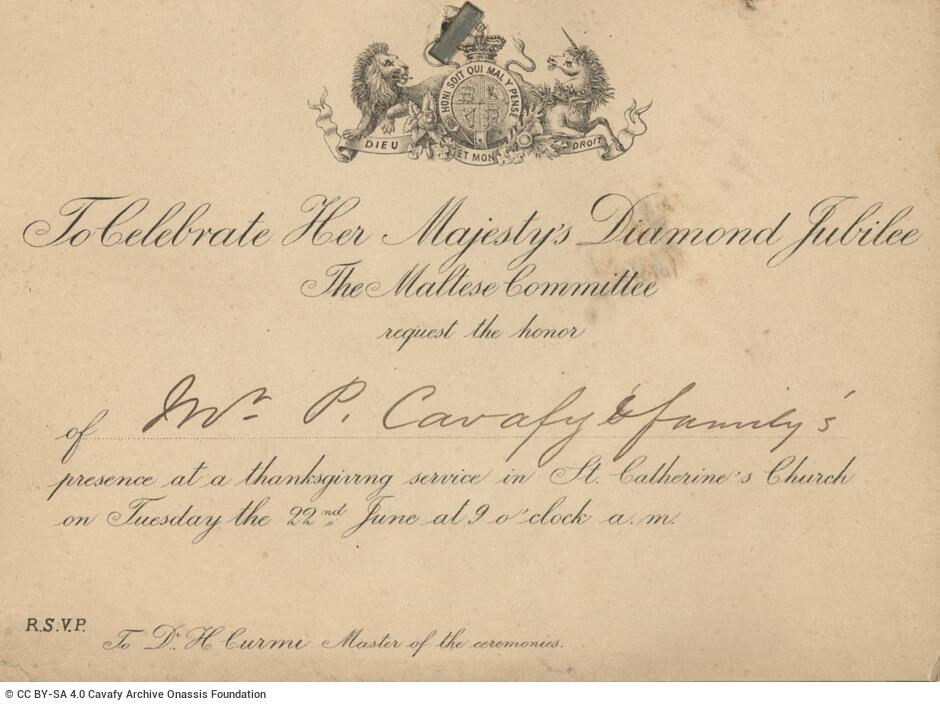 HONI SOIT QUI MAL Y PENSE
DIEU ET MON DROIT
To Celebrate Her Majesty's Diamond Jubilee
The Maltese Committee
request the honor
of Mr. P. Cavafy & family's
presence at a thanksgiving service in St. Catherine's Church
on Tuesday the 22nd June at 9 o'clock a.m.
R.S.V.P.
To Dr. H Curmi Master of the ceremonies.
© CC BY-SA 4.0 Cavafy Archive Onassis Foundation